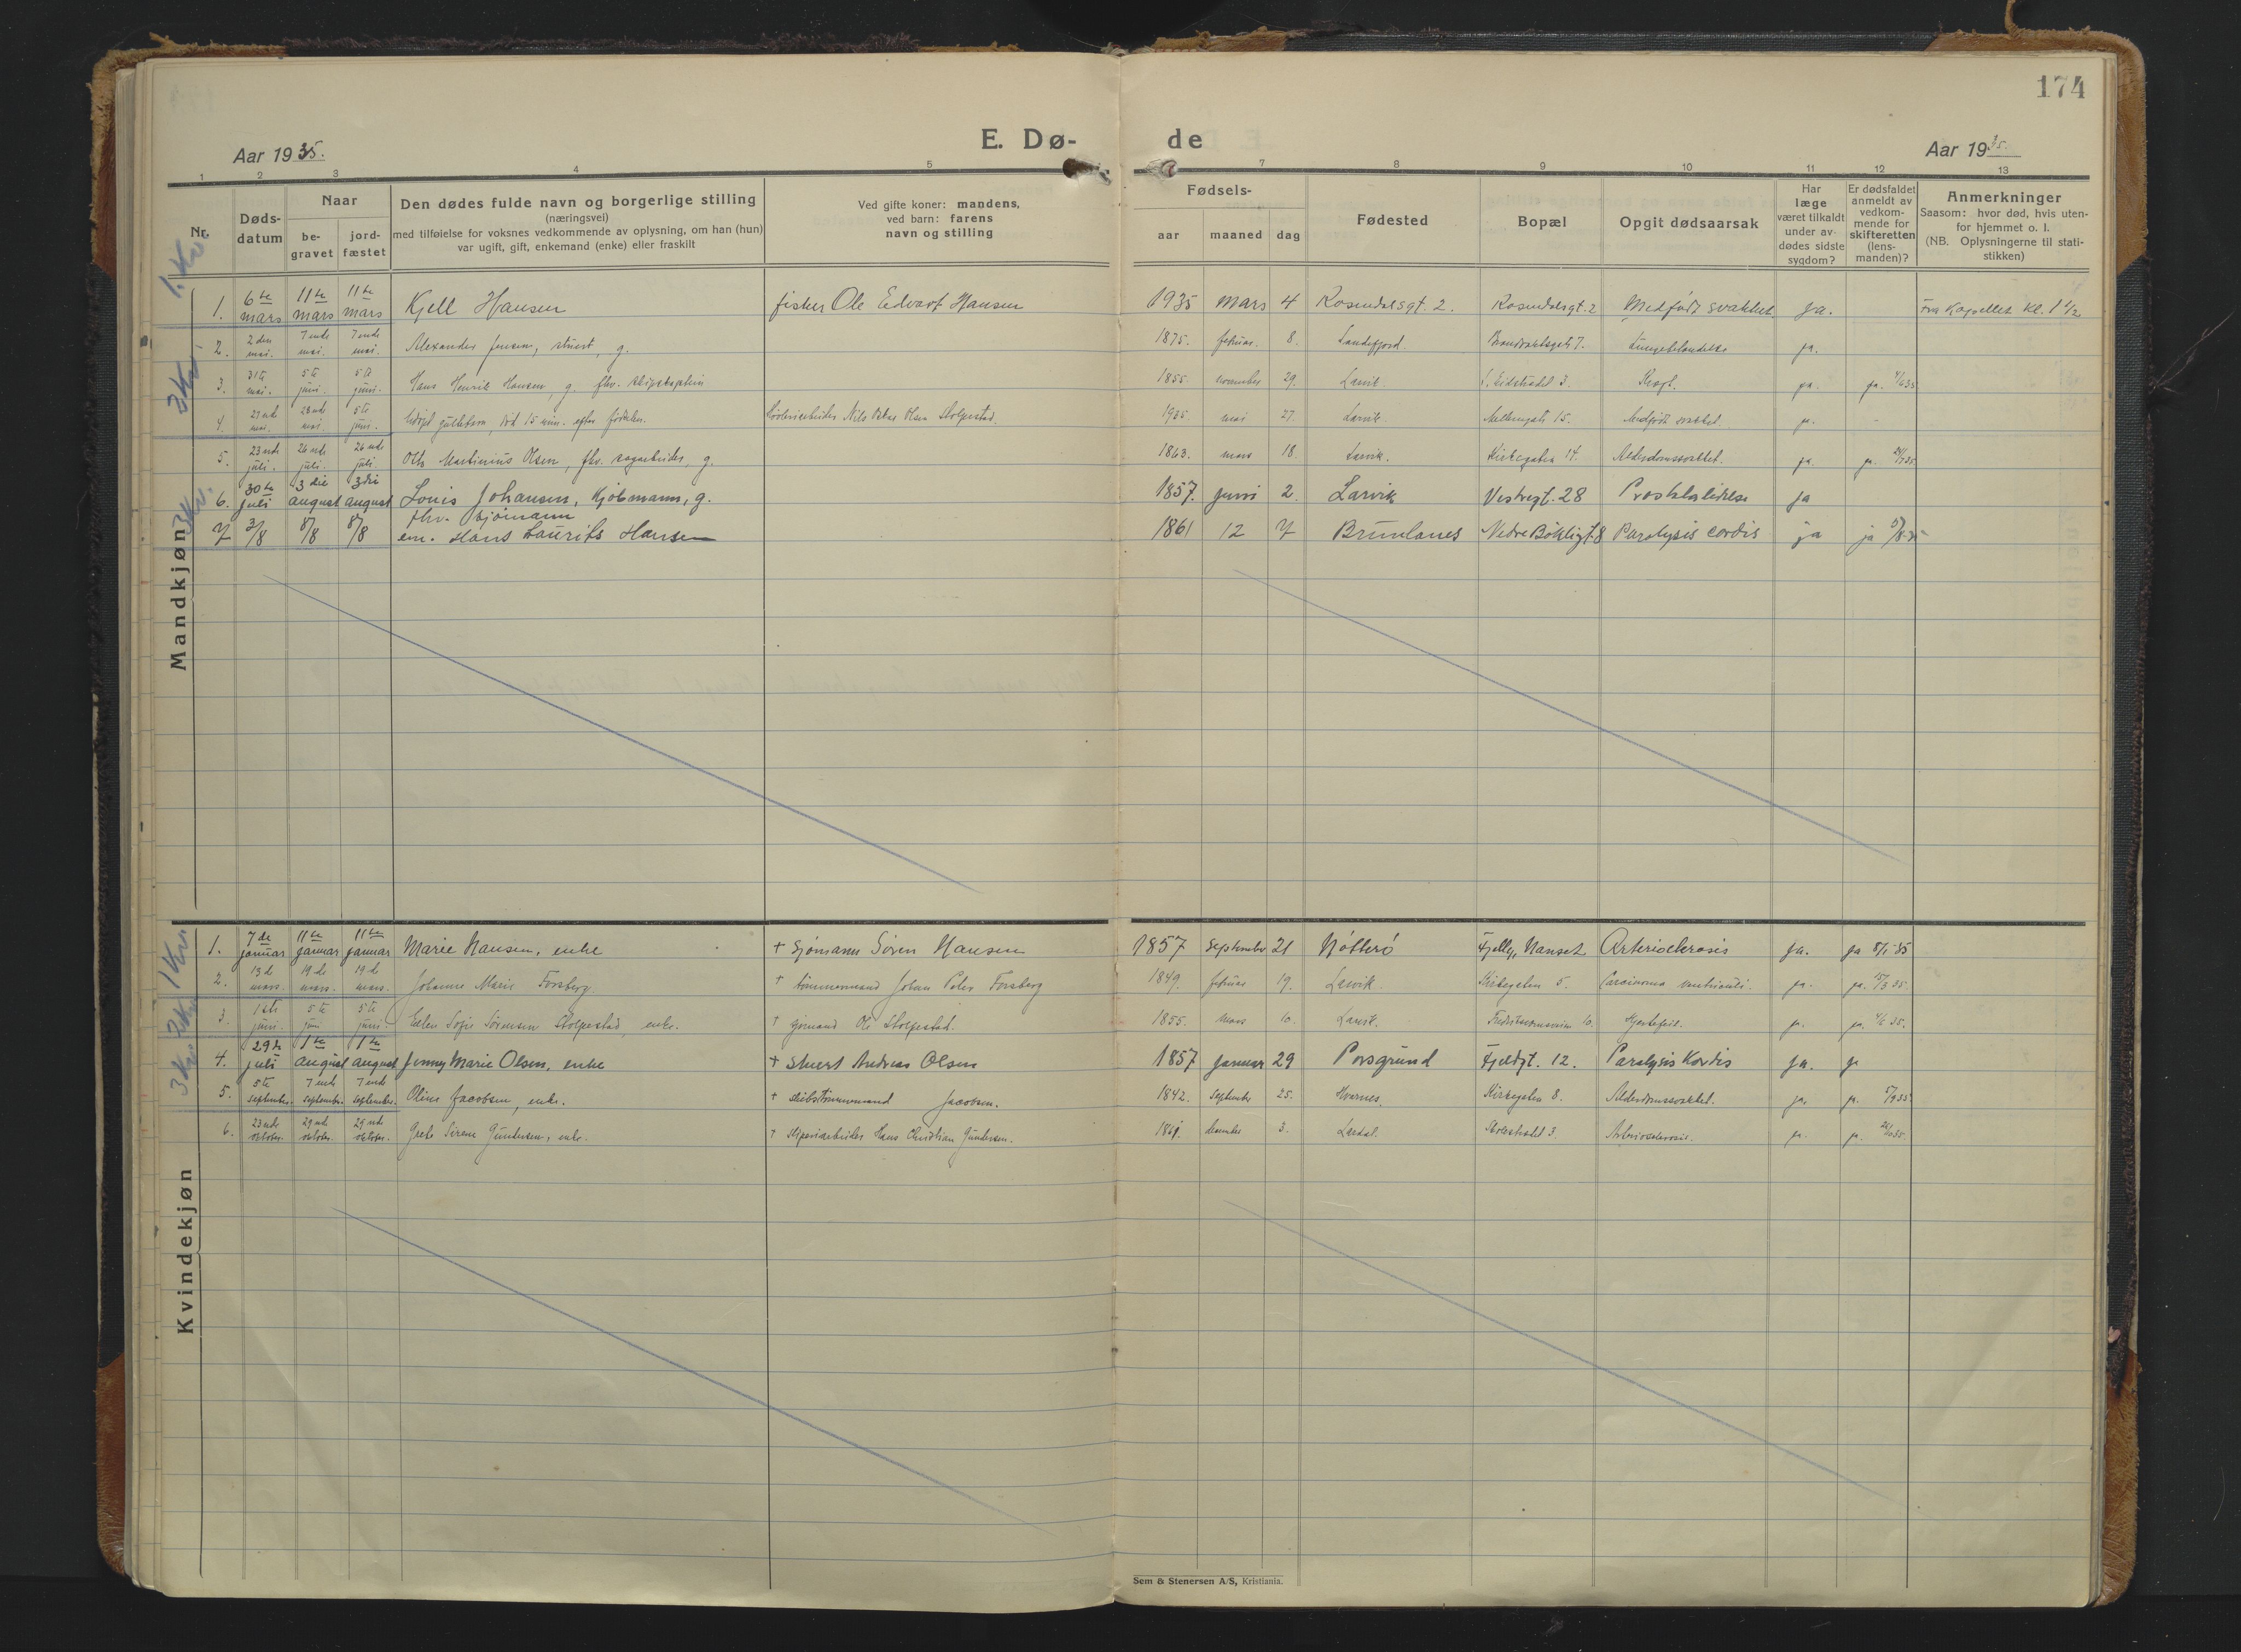 174
E. Dø- de
Aar 1935. Aar 1935.
1 2 3 4 5 7 8 9 10 11 12 13
Nr. Døds-datum Naar be-gravet jord-fæstet
Den dødes fulde navn og borgerlige stilling
(næringsvei)
med tilføielse for voksnes vedkommende av oplysning, om han (hun)
var ugift, gift, enkemand (enke) eller fraskilt
Ved gifte koner: mandens,
ved barn: farens
navn og stilling
Fødsels-
aar maaned dag
Fødested
Bopæl
Opgit dødsaarsak
Har
læge
været tilkaldt
under av-
dødes sidste
sygdom?
Er dødsfaldet
anmeldt av
vedkom-
mende for
skifteretten
(lens-
manden)?
Anmerkninger
Saasom: hvor død, hvis uten-
for hjemmet o. l.
(NB. Oplysningerne til stati-
stikken)
Mandkjøn
1. Kv.
1. 6te mars 11te mars 11te mars Kjell Hansen fisker Ole Edvart Hansen 1935 mars 4 Rosendalsgt. 2. Rosendalsgt. 2 Medfødt svakhet ja. Fra Kapellet Kl. 1 1/2
2. 2den mai. 7ende mai. 7ende mai. Alexander Jensen, stuert, g. 1875. februar. 8. Sandefjord. 7. Lungebetændelse ja.
3 Kv.
3. 31te mai. 5te juni. 5te juni. Hans Henrik Hansen, g. fhv. skipskaptein 1855. november 29. Larvik. 3. ja. ja. 4/6 35
4. 27ende mai. 28ende mai. 5te juni. Udøpt guttebarn, død 15 min. efter fødselen. Nils Oskar Olsen Stolpestad. 1935 mai 27. Larvik. 15. Medfødt svakhet. ja. -
5. 23ende juli. 26ende juli. 26ende juli Otto Martinius Olsen, fhv. sagarbeider, g. 1863. mars 18 Larvik. Kirkegaten 14. Alderdomssvakhet. ja. ja. 24/7 35
3 Kv.
6. 30te juli 3die august 3die august Louis Johansen, Kjøbmann, g. 1857. juni 2. Larvik Vestregt. 28 Prostatalidelse ja
7 3/8 8/8 8/8 fhv. sjømann
em. Hans Laurits Hansen 1861 12 7 Brunlanes Nedre Bökligt. 8 Paralysis cordis ja ja 5/8-35
Kvindekjøn
1 Kv.
1. 7de januar 11te januar 11te januar Marie Hansen, enke + Sjømann Søren Hansen 1857 September 21 Nøtterö Fjellv, Nanset Arteriosklerosis ja. ja 8/1-35
2. 13de mars. 19de mars. 19de mars. Johanne Marie Forsberg. + tømmermand Johan Peter Forsberg 1849. februar 19. Larvik. Kirkegaten 5. Carcinoma ventriculi. ja. ja. 15/3 35.
2 Kv.
3. 1ste juni. 5te juni 5te juni. Edlen Sofie Sörensen Stolpestad, enke. + sjømand Ole Stolpestad. 1855. Mars 10. Larvik. 10. Hjertefeil. ja. ja. 4/6 35.
3 Kv.
4. 29de juli 1te august 1te august Jenny Marie Olsen, enke + Stuert Andreas Olsen 1857 januar 29 Porsgrund Fjeldgt. 12. Paralysis Kordis ja. ja
5. 5te September. 7ende September. 7ende September. Oline Jacobsen, enke. + skibstømmermand Jacobsen. 1842. September 25. Hvarnes. Kirkegaten 8. Alderdomssvakhet. ja. ja. 5/9 35
6. 23ende oktober. 29ende oktober. 29ende oktober. Grete Sirene Gundersen, enke. + Hans Christian Gundersen. 1861. december 3. Lardal. 3. Arteriosclerosis. ja. ja. 35.
Sem & Stenersen A/S, Kristiania.